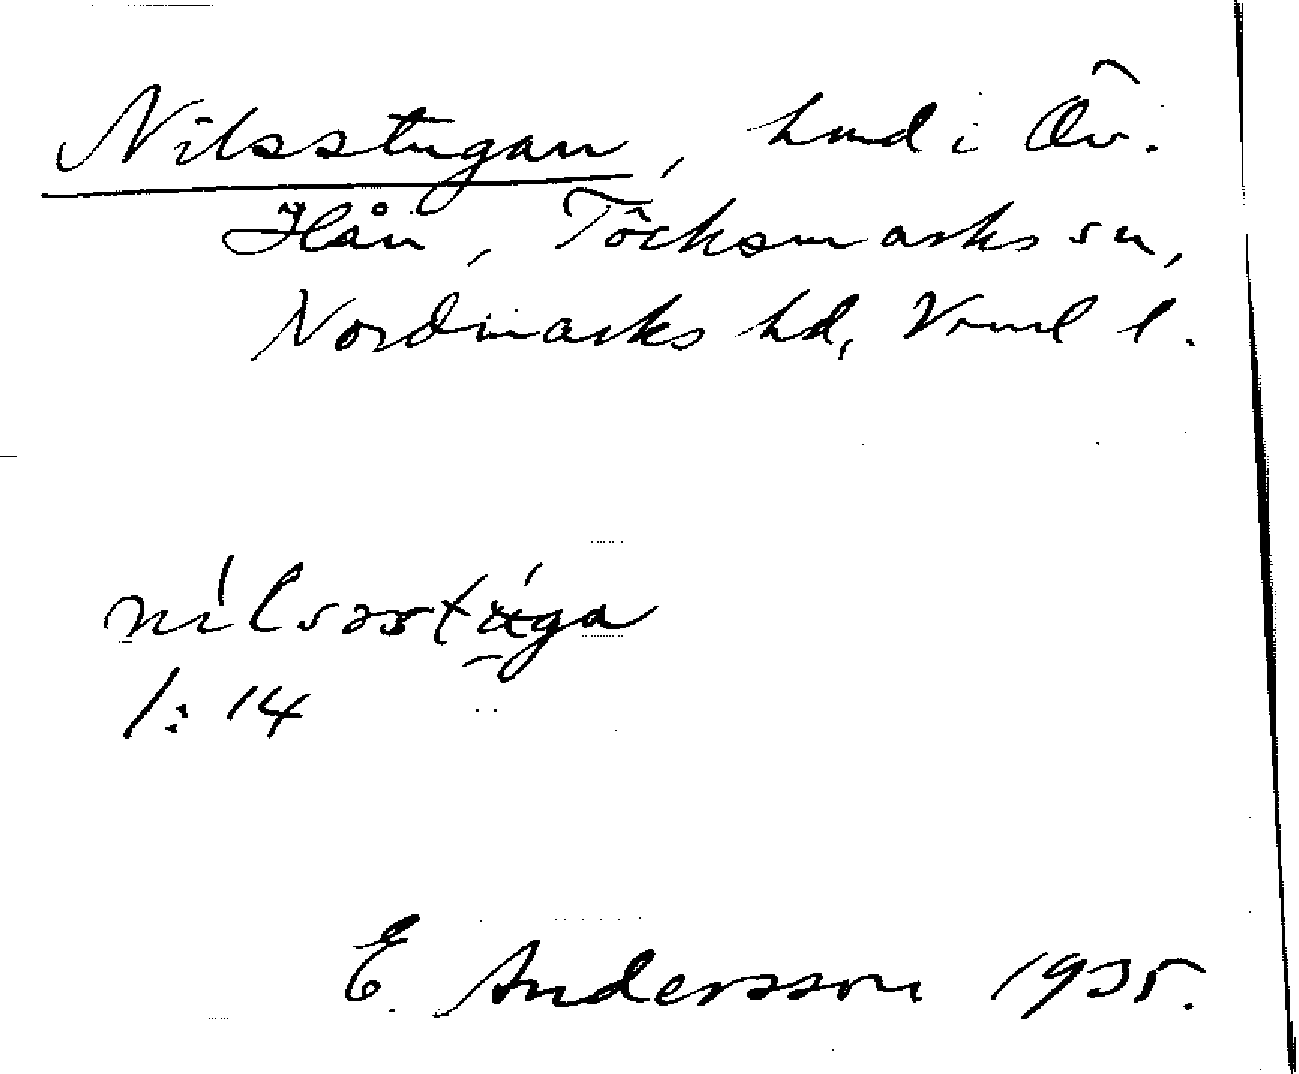 Nilsstugan, hmd i Öv.
Hån, Töcksmarks sn,
Nordmarks hd, Vrml l.
1:14
E. Andersson 1935.